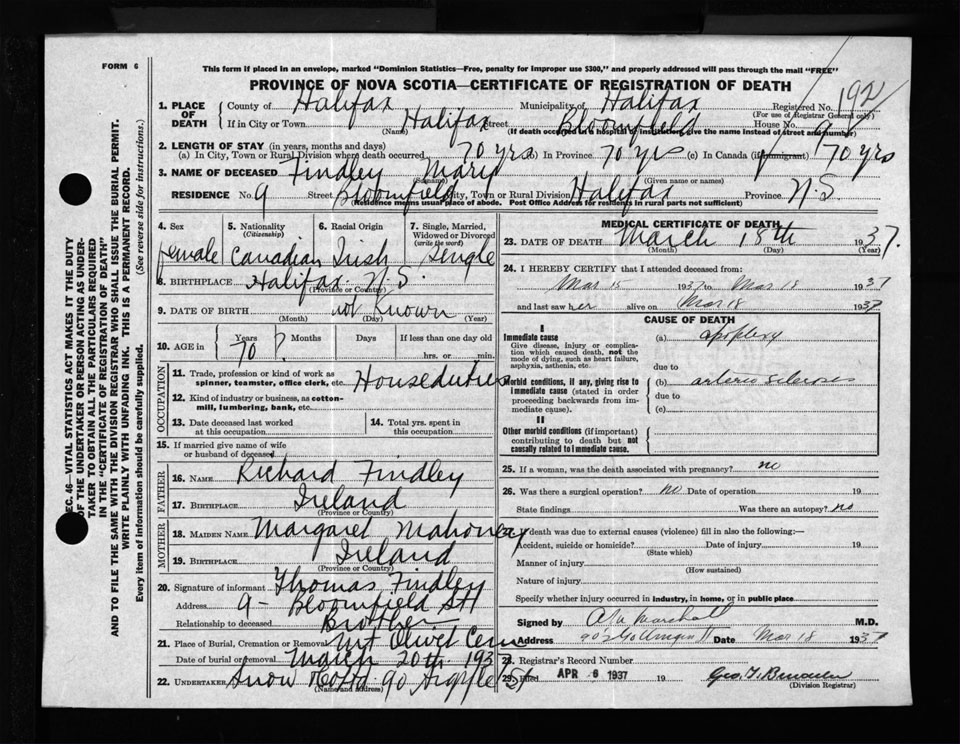 FORM 6
This form if placed in an envelope, marked "Dominion Statistics—Free, penalty for improper use $300," and properly addressed will pass through the mail "FREE"
PROVINCE OF NOVA SCOTIA—CERTIFICATE OF REGISTRATION OF DEATH
1. PLACE OF DEATH County of Halifax Municipality of Halifax Registered No. 192
(For use of Registrar General only)
If in City or Town Halifax Street Bloomfield House No. 9
(Name) (If death occurred in a hospital or institution, give the name instead of street and number)
2. LENGTH OF STAY (in years, months and days)
(a) In City, Town or Rural Division where death occurred 70 yrs (b) In Province 70 yrs (c) In Canada (if immigrant) 70 yrs
3. NAME OF DECEASED Findley Mary
(Surname) (Given name or names)
RESIDENCE No. 9 Street Bloomfield City, Town or Rural Division Halifax Province N.S.
(Residence means usual place of abode. Post Office Address for residents in rural parts not sufficient)
4. Sex 5. Nationality (Citizenship) 6. Racial Origin 7. Single, Married, Widowed or Divorced (write the word)
female Canadian Irish Single
8. BIRTHPLACE Halifax N.S.
(Province or Country)
9. DATE OF BIRTH not known
(Month) (Day) (Year)
10. AGE in Years Months Days If less than one day old
70 ? hrs. or min.
OCCUPATION
11. Trade, profession or kind of work as spinner, teamster, office clerk, etc. Houseduties
12. Kind of industry or business, as cotton-mill, lumbering, bank, etc.
13. Date deceased last worked at this occupation
14. Total yrs. spent in this occupation
15. If married give name of wife or husband of deceased
FATHER
16. NAME Richard Findley
17. BIRTHPLACE Ireland
(Province or Country)
MOTHER
18. MAIDEN NAME Margaret Mahoney
19. BIRTHPLACE Ireland
(Province or Country)
20. Signature of informant Thomas Findley
Address 9 - Bloomfield St
Relationship to deceased Brother
21. Place of Burial, Cremation or Removal Mt Olivet Cem
Date of burial or removal March 20th 193
22. UNDERTAKER Snow Co Ltd 90 Argyle St
(Name and address)
MEDICAL CERTIFICATE OF DEATH
23. DATE OF DEATH March 18th 1937.
(Month) (Day)
24. I HEREBY CERTIFY that I attended deceased from:
Mar 15 1937 to Mar 18 1937
and last saw her alive on Mar 18 1937
CAUSE OF DEATH
I
Immediate cause
Give disease, injury or complication which caused death, not the mode of dying, such as heart failure, asphyxia, asthenia, etc.
(a) apoplexy
due to
Morbid conditions, if any, giving rise to immediate cause (stated in order proceeding backwards from immediate cause).
(b) arterio sclerosis
due to
(c)
II
Other morbid conditions (if important) contributing to death but not causally related to immediate cause.
25. If a woman, was the death associated with pregnancy? no
26. Was there a surgical operation? no Date of operation 19
State findings Was there an autopsy? no
death was due to external causes (violence) fill in also the following:—
Accident, suicide or homicide? Date of injury 19
(State which)
Manner of injury
(How sustained)
Nature of injury
Specify whether injury occurred in industry, in home, or in public place
Signed by Marshall M.D.
Address Date Mar 18 1937
28. Registrar's Record Number
29. Filed APR 6 1937 19
(Division Registrar)
SEC. 46—VITAL STATISTICS ACT MAKES IT THE DUTY
OF THE UNDERTAKER OR PERSON ACTING AS UNDER-
TAKER TO OBTAIN ALL THE PARTICULARS REQUIRED
IN THE "CERTIFICATE OF REGISTRATION OF DEATH"
AND TO FILE THE SAME WITH THE DIVISION REGISTRAR WHO SHALL ISSUE THE BURIAL PERMIT.
WRITE PLAINLY WITH UNFADING INK. THIS IS A PERMANENT RECORD.
Every item of information should be carefully supplied. (See reverse side for instructions.)